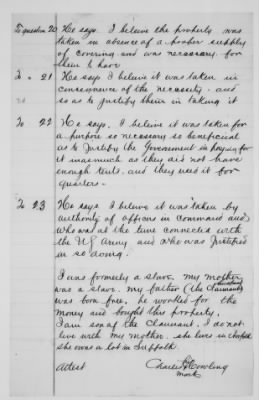 To question 20 He says. I believe the property was
taken in absence of a proper supply
of covering and was necessary for
them to have
To " 21 He says I believe it was taken in
consequence of the necessity. and
so as to justify them in taking it
To 22 He says. I believe it was taken for
a purpose so necessary so beneficial
as to justify the Government in paying for
it inasmuch as they did not have
enough tents. and they used it for
quarters.
To 23 He says I believe it was taken by
authority of officers in command and
who was at the time connected with
the US Army and who was justified
in so doing.
I was formerly a slave. my mother
was a slave. my father (the Claimant's husband)
was born free. he worked for the
money and bought this property.
I am son of the Claimant. I do not
live with my mother. she lives in
she owns a lot in Suffolk.
Attest Charles Cowling
mark